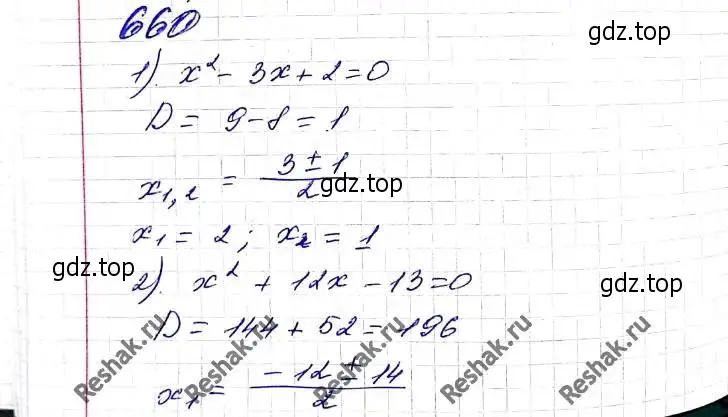 660
gdz.top
1). x² - 3x + 2 = 0
D = 9 - 8 = 1
x₁,₂ = (3 ± 1)/2
gdz.top
x₁ = 2; x₂ = 1
gdz.top
2). x² + 12x - 13 = 0
gdz.top
D = 144 + 52 = 196
x₁ = (-12 ± 14)/2
Reshak.ru
Reshak.ru
Reshak.ru
Reshak.ru